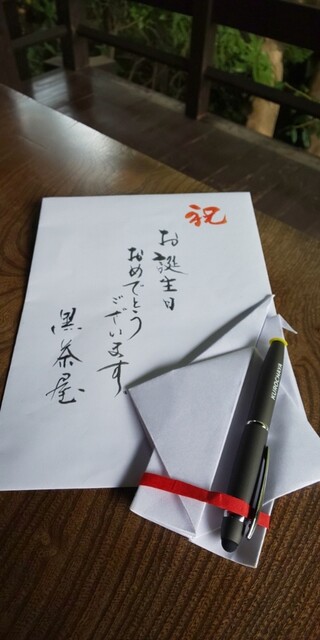 祝
お誕生日
おめでとう
ございます
黒茶屋
KUROCHAYA